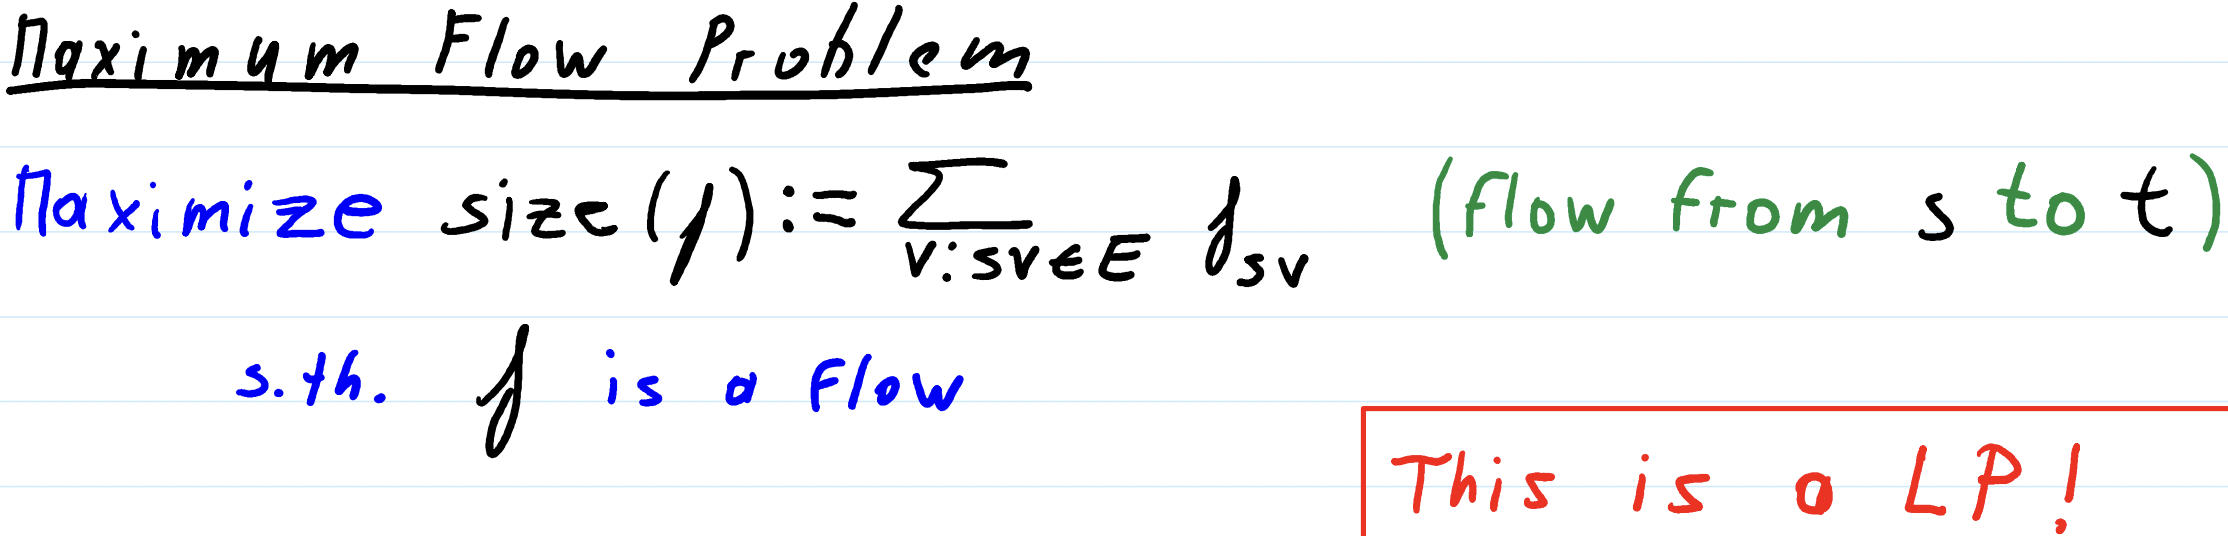 Maximum Flow Problem
Maximize size(f) := ∑ f_sv (flow from s to t)
v: sv ∈ E
s.th. f is a flow
This is a LP!